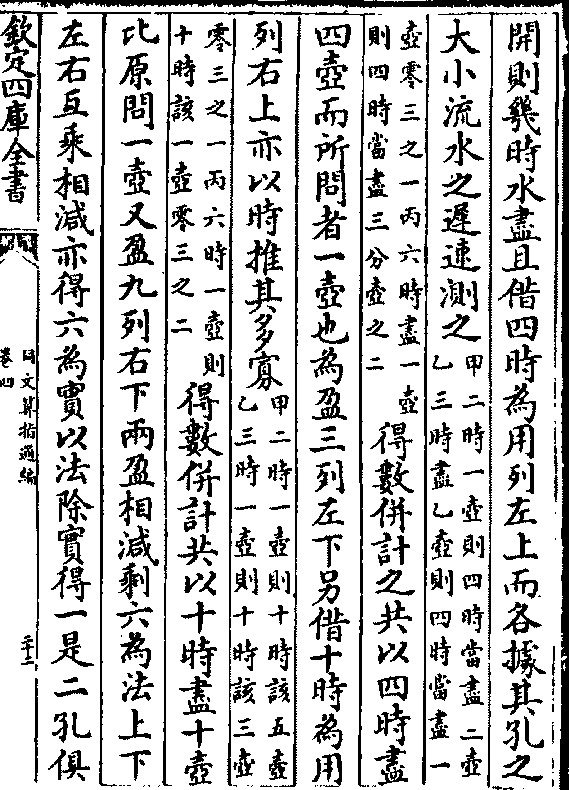 開則幾時水盡且借四時為用列左上而各據其孔之
大小流水之遲速測之甲二時一壺則四時當盡二壺
乙三時盡乙壺則四時當盡一
壺零三之一丙六時盡一壺
則四時當盡三分壺之二得數併計之共以四時盡
四壺而所問者一壺也為盈三列左下另借十時為用
列右上亦以時推其多寡甲二時一壺則十時該五壺
乙三時一壺則十時該三壺
零三之一丙六時一壺則
十時該一壺零三之二得數併計共以十時盡十壺
比原問一壺又盈九列右下兩盈相減剩六為法上下
左右互乘相減亦得六為實以法除實得一是二孔俱
欽定四庫全書
同文算指通編
卷四
二十二